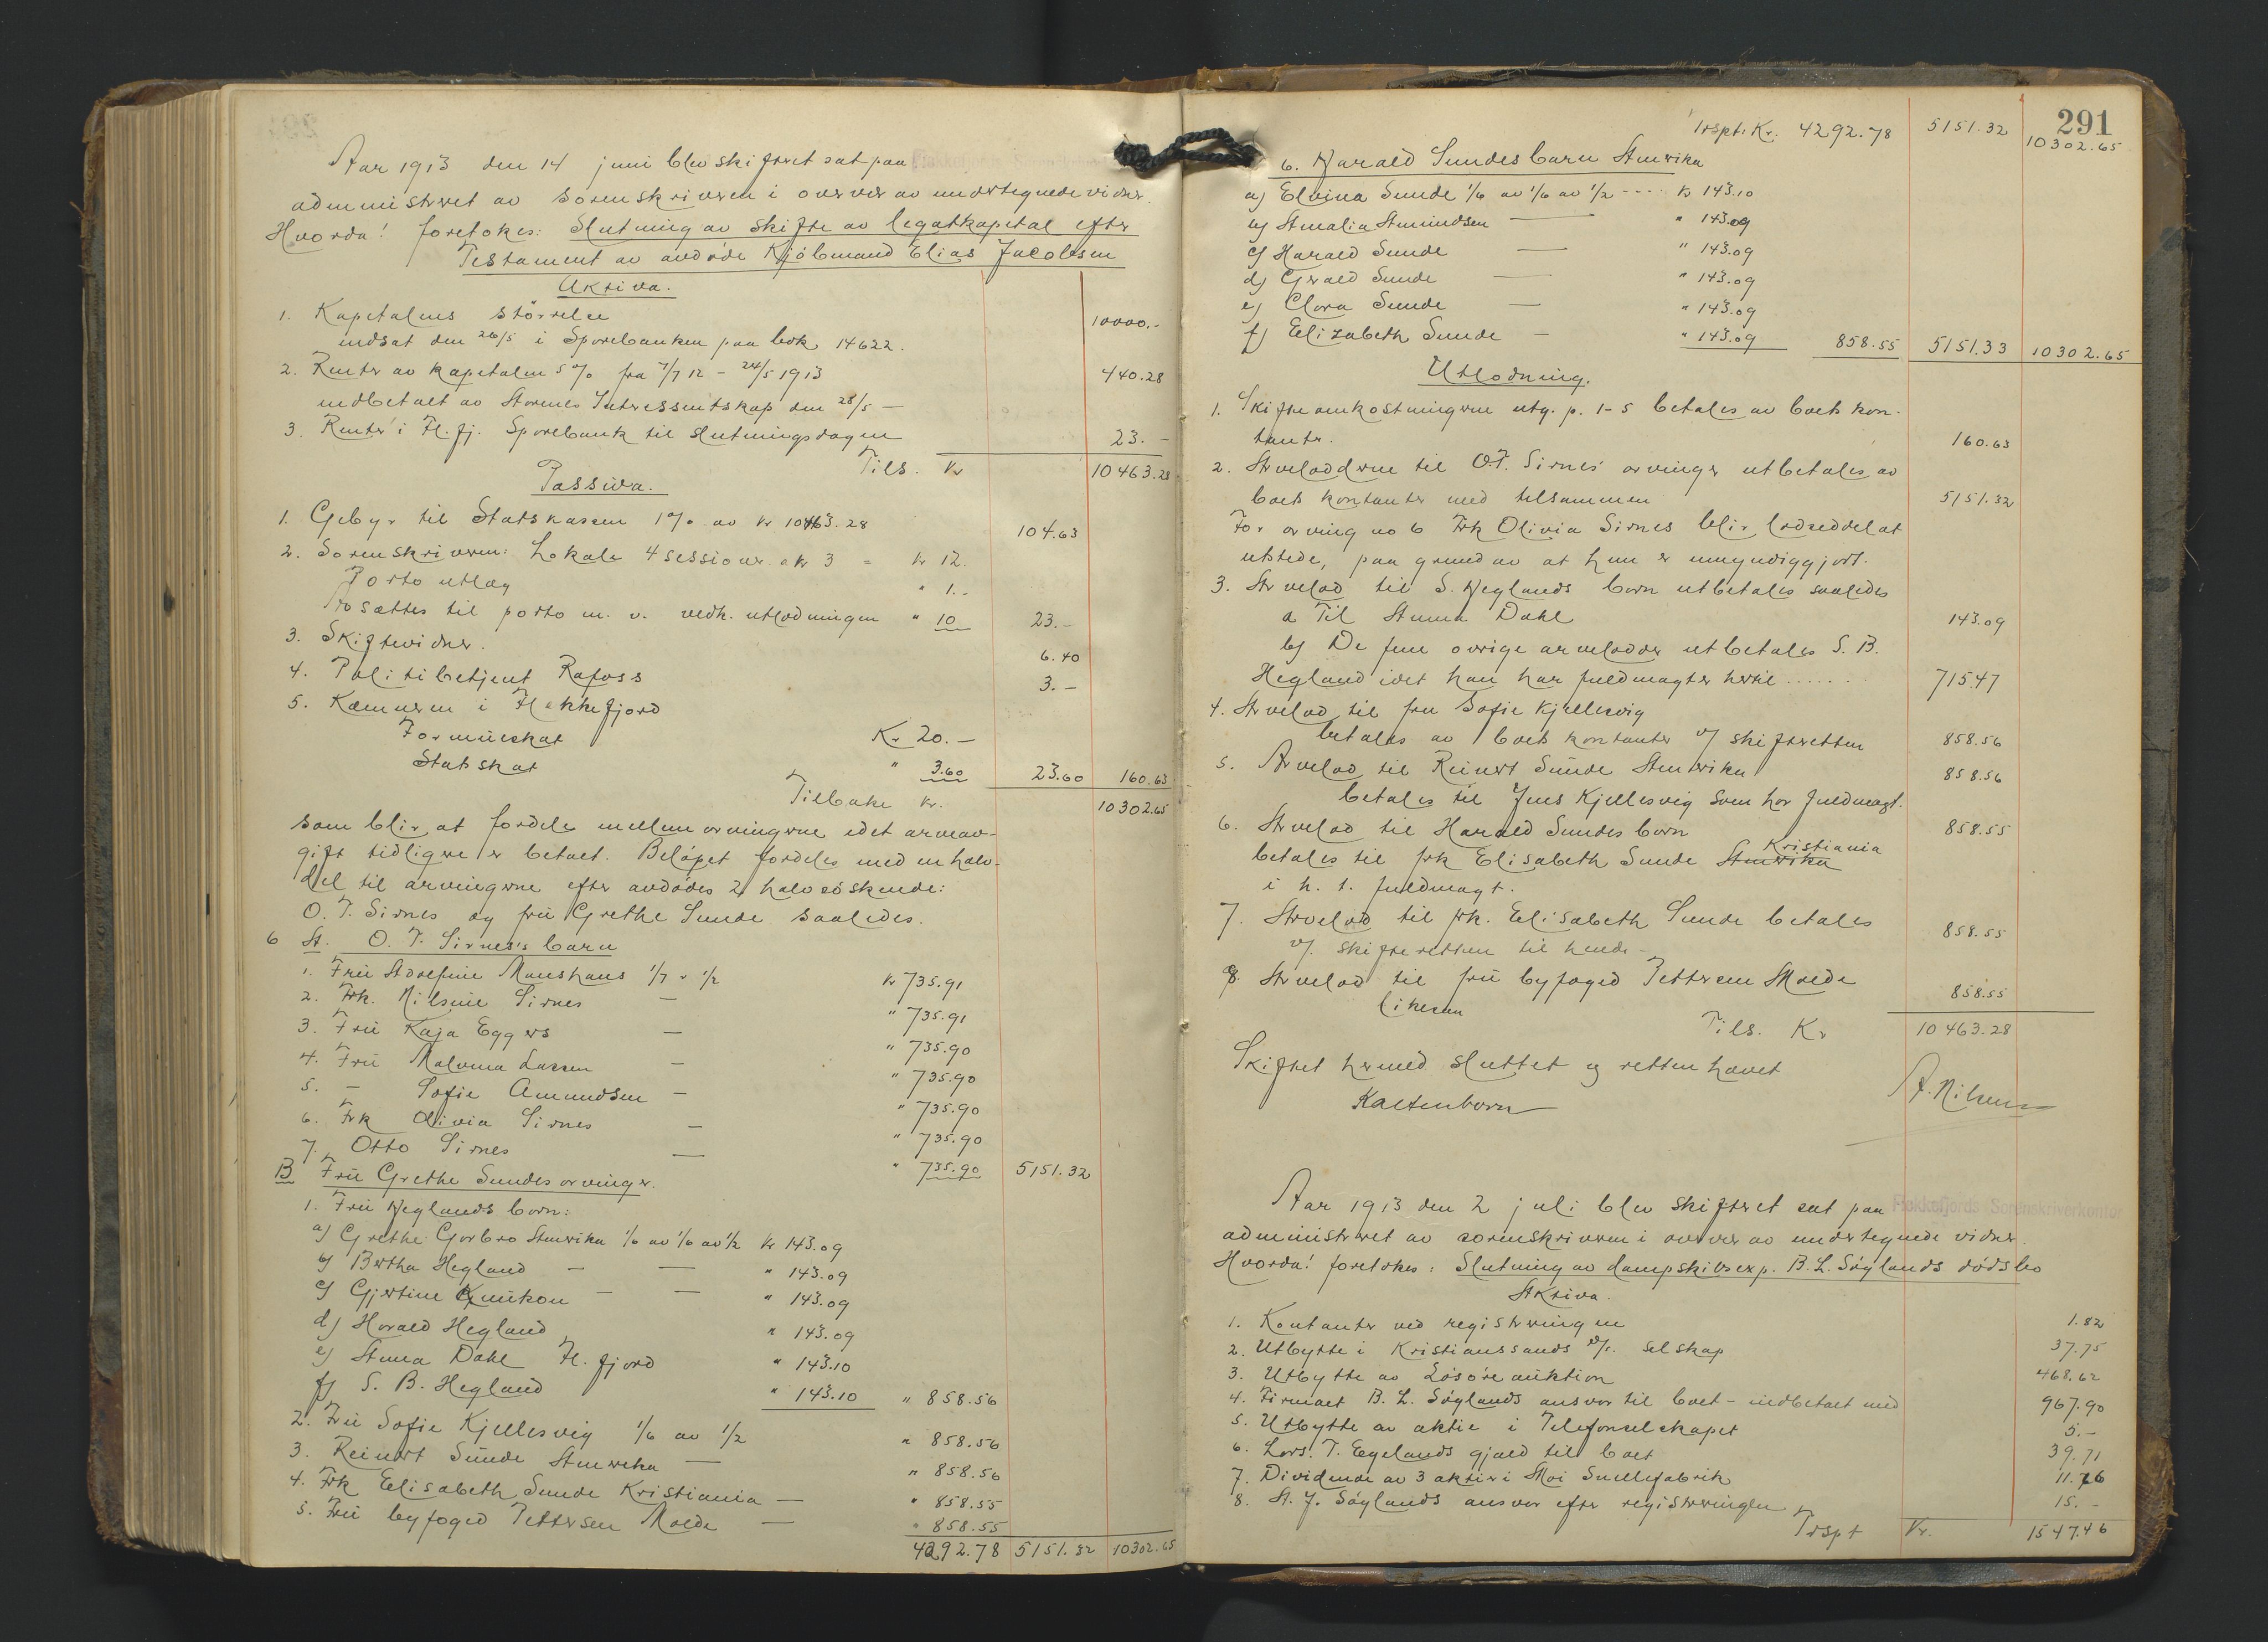 Aar 1913 den 14 juni blev skifteret sat paa Flekkefjords Sorenskriverkontor
administreret av sorenskriveren i overvær av undertegnede vidner.
Hvorda! foretokes: Slutning av skifte av legatkapital efter
Testament av avdøde Kjøbmand Elias Jacobsen
Aktiva.
1. Kapitalens størrelse 10000.-
indsat den 26/5 i Sparebanken paa bok 14622.
2. Renter av kapitalen 5% fra 7/7 12 - 24/5 1913 440.28
indbetalt av Arvenes Interessentskap den 28/5 -
3. Renter i Fl.fj. Sparebank til slutningsdagen 23.-
Tils. Kr 10463.28
Passiva.
1. Gebyr til Statskassen 1% av kr 10463.28 104.63
2. Sorenskriveren: Lokale 4 sessioner a kr 3 = kr 12.
Porto utlæg " 1.-
Avsættes til porto m. v. vedk. utlodningen " 10 23.-
3. Skiftevidner. 6.40
4. Politibetjent Rafoss 3.-
5. Kæmneren i Flekkefjord
Formueskat Kr 20.-
Statsskat " 3.60 23.60 160.63
Tilbake kr. 10302.65
som blir at fordele mellem arvingerne idet arveav-
gift tidligere er betalt. Beløpet fordeles med en halv-
del til arvingerne efter avdødes 2 halvsøskende:
O. T. Sirnes og fru Grethe Sunde saaledes.
6 A. O. T. Sirnes's barn
1. Fru Andrefine Monshaus 1/7 a 1/2 kr 735.91
2. Frk. Nilsine Sirnes - " 735.91
3. Fru Kaja Eggers - " 735.90
4. Fru Malvina Larsen - " 735.90
5. - Sofie Amundsen - " 735.90
6. Frk Olivia Sirnes - " 735.90
7. Otto Sirnes - " 735.90 5151.32
B Fru Grethe Sundes arvinger.
1. Fru Heglands born:
a) Grethe Gorbro Amerika 1/6 av 1/6 av 1/2 kr 143.09
b) Bertha Hegland - - " 143.09
c) Gjertine Knukon - - " 143.09
d) Harald Hegland " 143.09
e) Anna Dahl Fl. fjord " 143.10
f) S. B. Hegland " 143.10 " 858.56
2. Fru Sofie Kjellesvig 1/6 av 1/2 " 858.56
3. Reinert Sunde Amerika - " 858.56
4. Frk Elisabeth Sunde Kristiania - " 858.55
5. Fru byfoged Pettersen Molde - " 858.55
4292.78 5151.32 10302.65
291
Trspt: Kr. 4292.78 5151.32 10302.65
6. Harald Sundes barn Amerika
a) Elvina Sunde 1/6 av 1/6 av 1/2 ---- kr 143.10
b) Amalia Amundsen - " 143.09
c) Harald Sunde - " 143.09
d) Gerald Sunde - " 143.09
e) Clara Sunde - " 143.09
f) Elizabeth Sunde - " 143.09 858.55 5151.33 10302.65
Utlodning.
1. Skifteomkostningerne utg. p. 1-5 betales av boets kon-
tanter. 160.63
2. Arveloddene til O.T. Sirnes' arvinger utbetales av
boets kontanter med tilsammen 5151.32
For arving no 6 Frk Olivia Sirnes blir lodseddel at
utstede, paa grund av at hun er umyndiggjort.
3. Arvelod til S. Heglands born utbetales saaledes
a Til Anna Dahl 143.09
b) De fem øvrige arvelodder utbetales S. B.
Hegland idet han har fuldmagter hertil ...... 715.47
4. Arvelod til fru Sofie Kjellesvig
betales av boets kontanter v/ skifteretten 858.56
5. Arvelod til Reinert Sunde Amerika 858.56
betales til Jens Kjellesvig som har fuldmagt.
6. Arvelod til Harald Sundes born 858.55
betales til frk Elisabeth Sunde Amerika Kristiania
i h. t. fuldmagt.
7. Arvelod til frk. Elisabeth Sunde betales 858.55
v/ skifteretten til hende -
8. Arvelod til fru byfoged Pettersen Molde 858.55
likesaa
Tils. Kr 10463.28
Skiftet hermed sluttet og retten hævet
Kaltenborn A. Nilsen
Aar 1913 den 2 juli blev skifteret sat paa Flekkefjords Sorenskriverkontor
administreret av sorenskriveren i overvær av undertegnede vidner.
Hvorda! foretokes: Slutning av dampskibsexp. B. L. Søylands dødsbo
Aktiva.
1. Kontanter ved registreringen 1.82
2. Utbytte i Kristianssands D/s. selskap 37.75
3. Utbytte av Løsøreauktion 468.62
4. Firmaet B. L. Søylands ansvar til boet - indbetalt med 967.90
5. Utbytte av aktie i Telefonselskapet 5.-
6. Lars. T. Egelands gjæld til boet 39.71
7. Dividende av 3 aktier i Moi Snellefabrik 11.76
8. A. J. Søylands ansvar efter registreringen 15.-
Trspt Kr. 1547.46